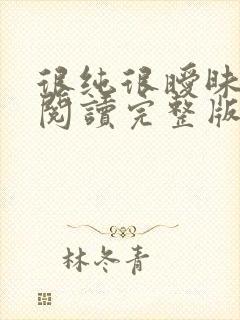 很純很曖昧
閱讀完整版
林冬青